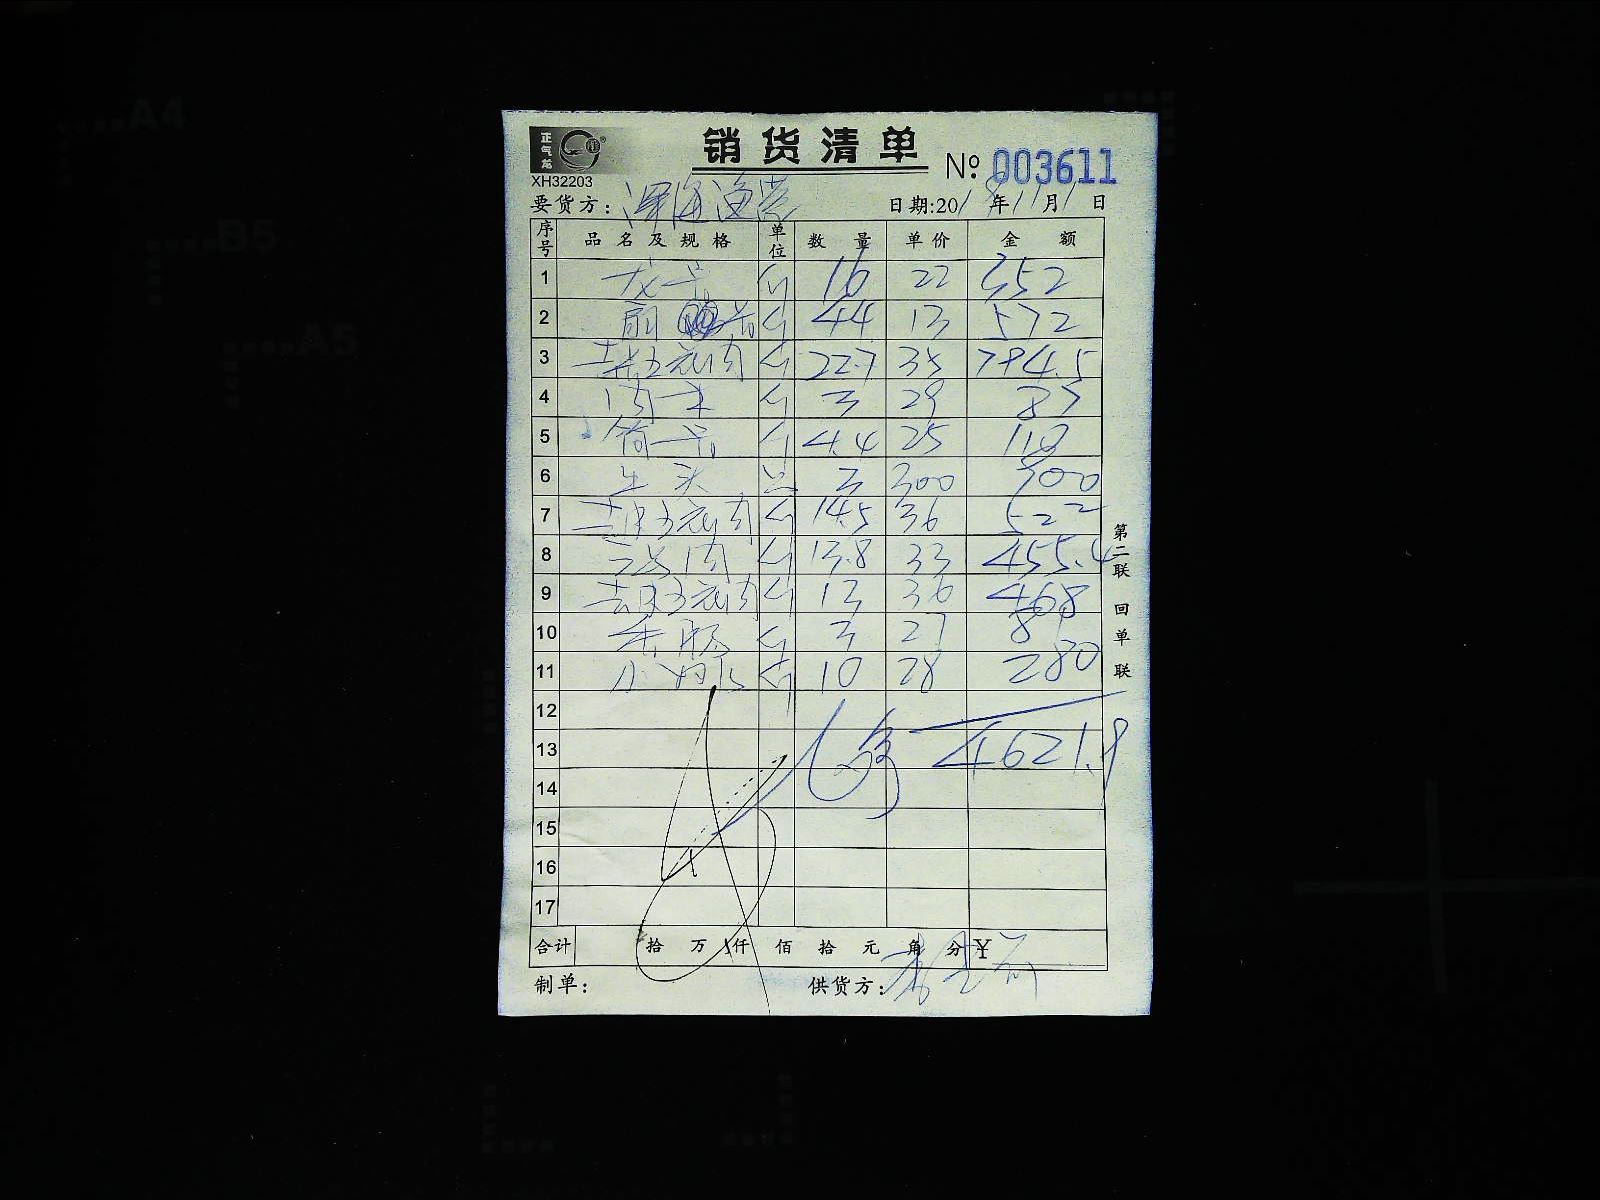 正气龙
XH32203
销货清单
№ 003611
要货方: 深海渔
日期:2018年11月1日
序号 品名及规格 单位 数量 单价 金额
1 龙骨 斤 16 22 352
2 扇骨 斤 44 13 572
3 五花肉 斤 22.7 35 794.5
4 肉 斤 3 29 87
5 筒骨 斤 4.4 25 110
6 头 3 300 900
7 去皮五花肉 斤 14.5 36 522
8 肉 斤 13.8 33 455.4
9 去皮五花肉 斤 13 36 468
10 斤 3 27 81
11 小 斤 10 28 280
12
13 4621.9
14
15
16
17
合计 拾 万 仟 佰 拾 元 角 分 ¥
制单: 供货方:
第二联 回单联